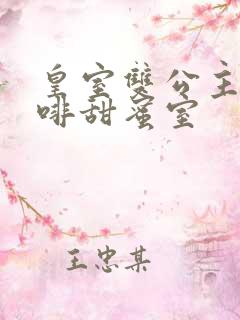 皇室雙公主
啡甜蜜室
王忠某